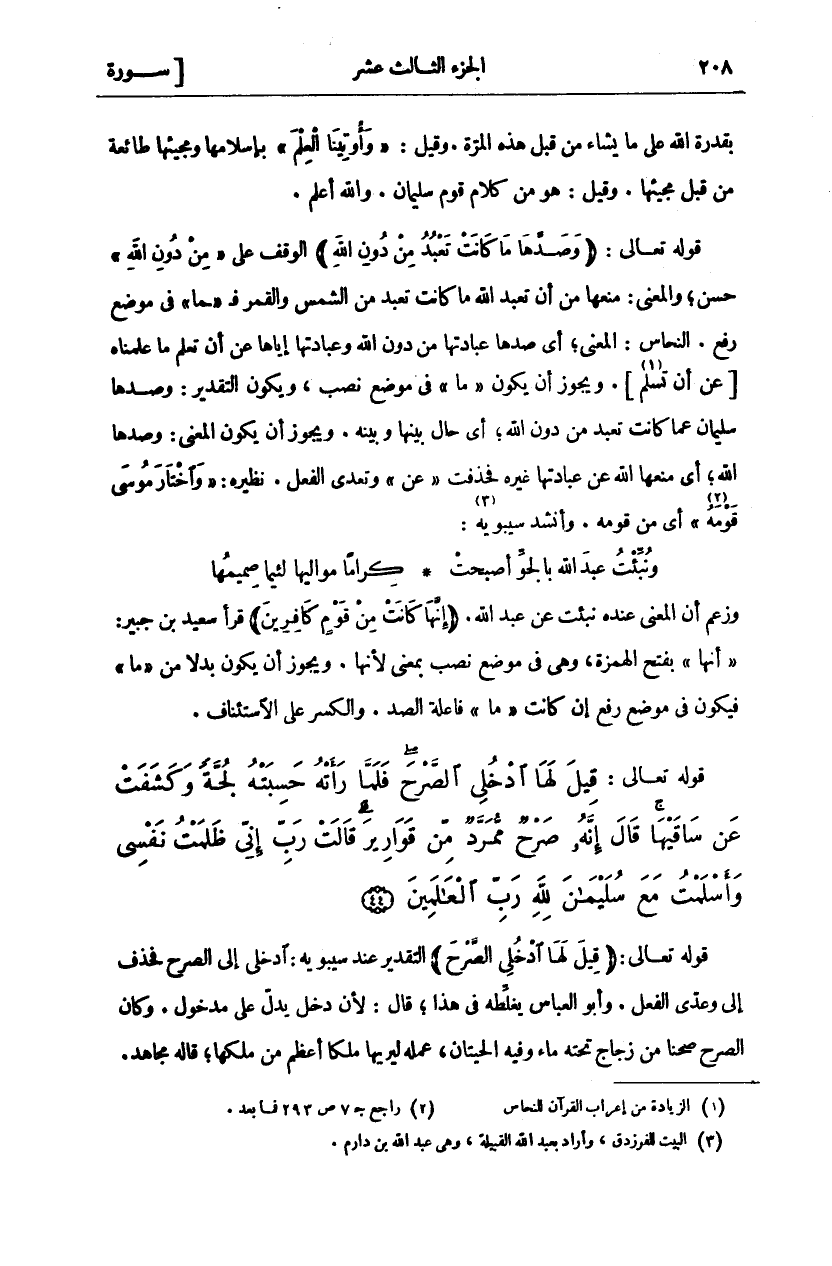 ٢٠٨ الجزء الثالث عشر [ سورة
بقدرة الله على ما يشاء من قبل هذه المرّة . وقيل : « وَأُوتِينَا الْعِلْمَ » بإسلامها ومجيئها طائعة
من قبل مجيئها . وقيل : هو من كلام قوم سليمان . والله أعلم .
قوله تعالى : ﴿ وَصَدَّهَا مَا كَانَتْ تَعْبُدُ مِنْ دُونِ اللهِ ﴾ الوقف على « مِنْ دُونِ اللهِ »
حسن؛ والمعنى : منعها من أن تعبد الله ما كانت تعبد من الشمس والقمر فـ «ـما» فى موضع
رفع . النحاس : المعنى؛ أى صدها عبادتها من دون الله وعبادتها إياها عن أن تعلم ما علمناه
[ عن أن تسلم (١) ] . ويجوز أن يكون « ما » فى موضع نصب ، ويكون التقدير : وصدها
سليمان عما كانت تعبد من دون الله؛ أى حال بينها وبينه . ويجوز أن يكون المعنى : وصدها
الله؛ أى منعها الله عن عبادتها غيره فحذفت « عن » وتعدى الفعل . نظيره : « وَٱخْتَارَ مُوسَى
قَوْمَهُ (٢) » أى من قومه . وأنشد سيبويه (٣) :
ونُبِّئْتُ عبدَ الله بالجوِّ أصبحتْ * كِرامًا مواليها لئيما صِميمُها
وزعم أن المعنى عنده نبئت عن عبد الله . ﴿ إِنَّهَا كَانَتْ مِنْ قَوْمٍ كَافِرِينَ ﴾ قرأ سعيد بن جبير :
« أنها » بفتح الهمزة ، وهى فى موضع نصب بمعنى لأنها . ويجوز أن يكون بدلا من «ما»
فيكون فى موضع رفع إن كانت « ما » فاعلة الصد . والكسر على الآستئناف .
قوله تعالى : قِيلَ لَهَا ٱدْخُلِى ٱلصَّرْحَ ۖ فَلَمَّا رَأَتْهُ حَسِبَتْهُ لُجَّةً وَكَشَفَتْ
عَن سَاقَيْهَا ۚ قَالَ إِنَّهُۥ صَرْحٌ مُّمَرَّدٌ مِّن قَوَارِيرَ ۗ قَالَتْ رَبِّ إِنِّى ظَلَمْتُ نَفْسِى
وَأَسْلَمْتُ مَعَ سُلَيْمَـٰنَ لِلَّهِ رَبِّ ٱلْعَـٰلَمِينَ ٤٤
قوله تعالى : ﴿ قِيلَ لَهَا ٱدْخُلِى الصَّرْحَ ﴾ التقدير عند سيبويه : ٱدخلى إلى الصرح فحذف
إلى وعدّى الفعل . وأبو العباس يغلِّطه فى هذا ؛ قال : لأن دخل يدلّ على مدخول . وكان
الصرح صحنا من زجاج تحته ماء وفيه الحيتان ، عمله ليريها ملكا أعظم من ملكها؛ قاله مجاهد .
(١) الزيادة من إعراب القرآن للنحاس (٢) راجع جـ ٧ ص ٢٩٣ فما بعد .
(٣) البيت للفرزدق ، وأراد بعبد الله القبيلة ، وهى عبد الله بن دارم .